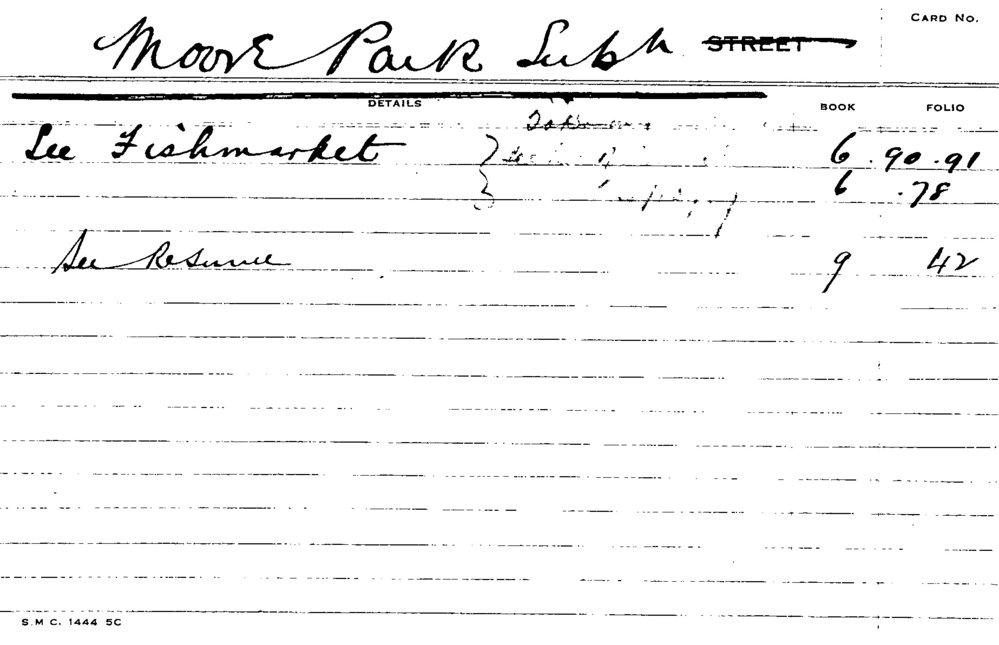 CARD NO.
Moore Park Subn STREET
DETAILS BOOK FOLIO
Taken
See Fishmarket 6 . 90 . 91
6 . 78
See Resume 9 42
S.M C. 1444 5C